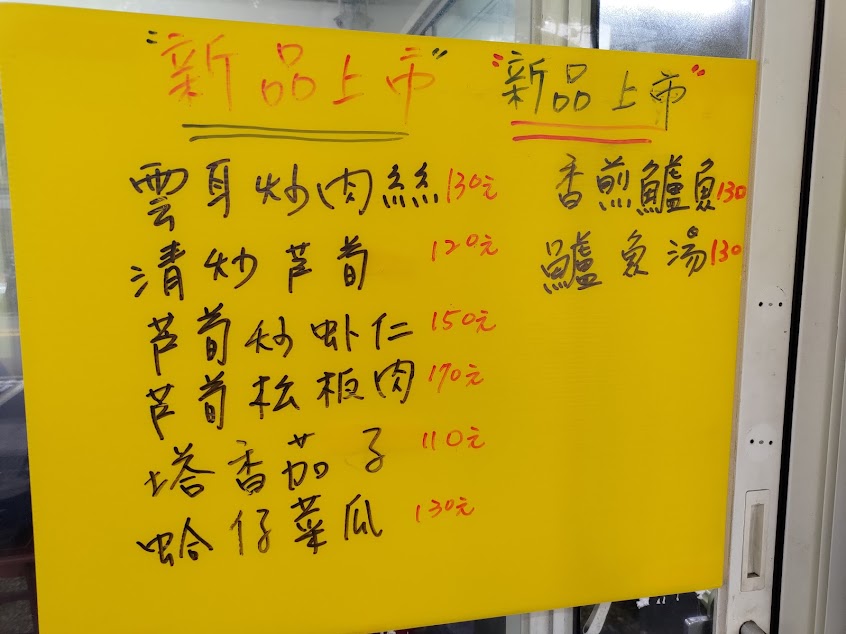 "新品上市"
雲耳炒肉絲130元
清炒芦荀120元
芦荀炒虾仁150元
芦荀松板肉170元
塔香茄子110元
蛤仔菜瓜130元
"新品上市"
香煎鱸魚130
鱸魚湯130